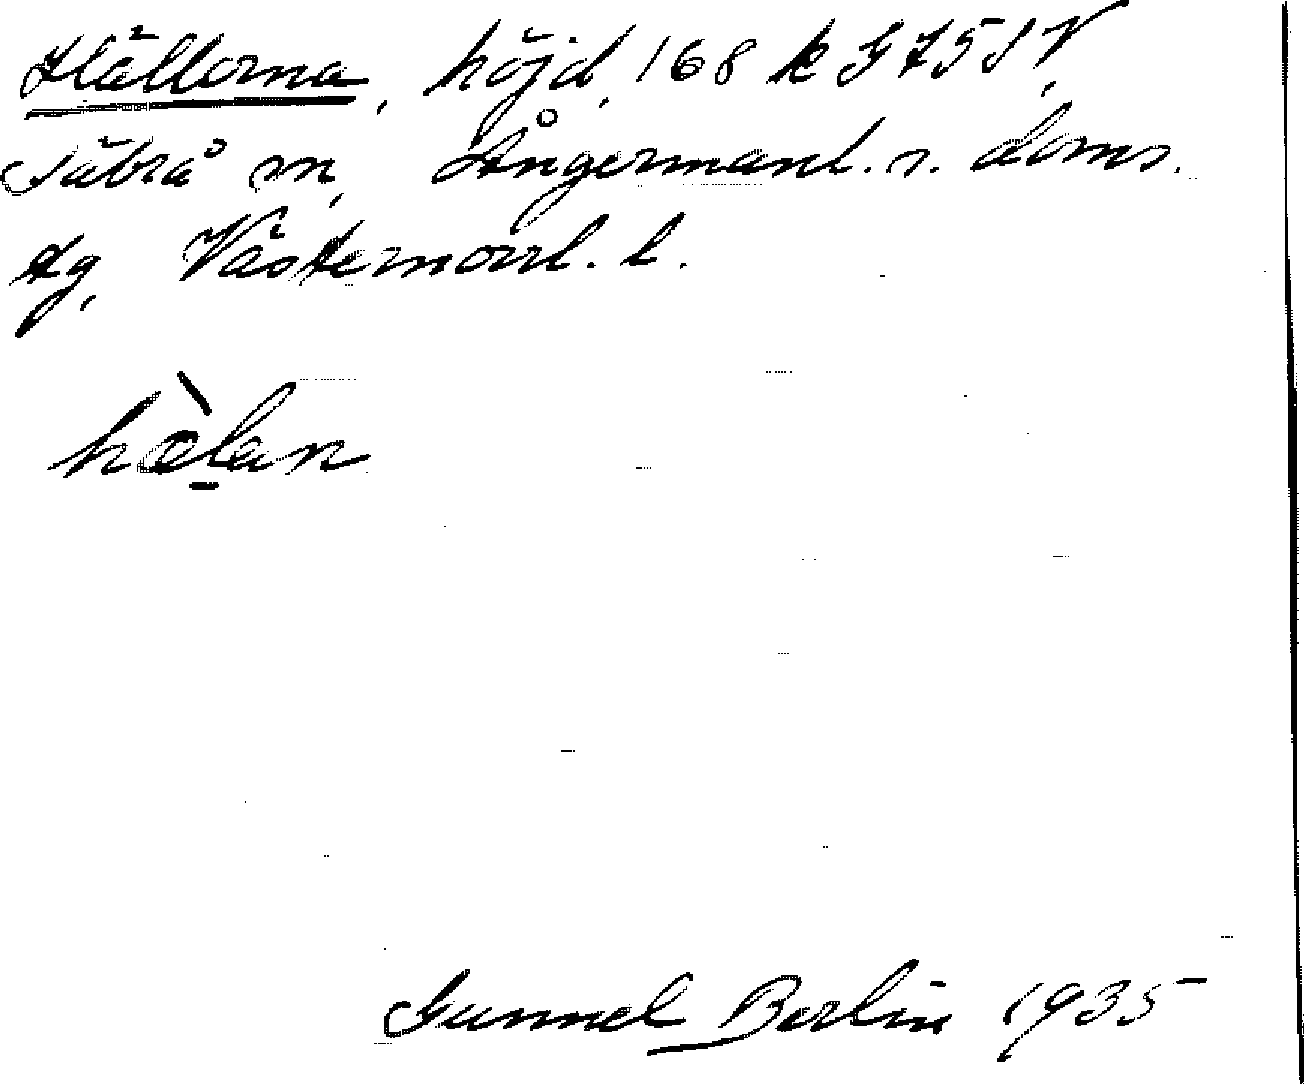 Hällorna, höjd, 168 k G 75 SV,
Säbrå sn, Ångermanl. s. doms.
tg, Västernorrl. l.
hæ̀lan
Gunnel Berlin 1935